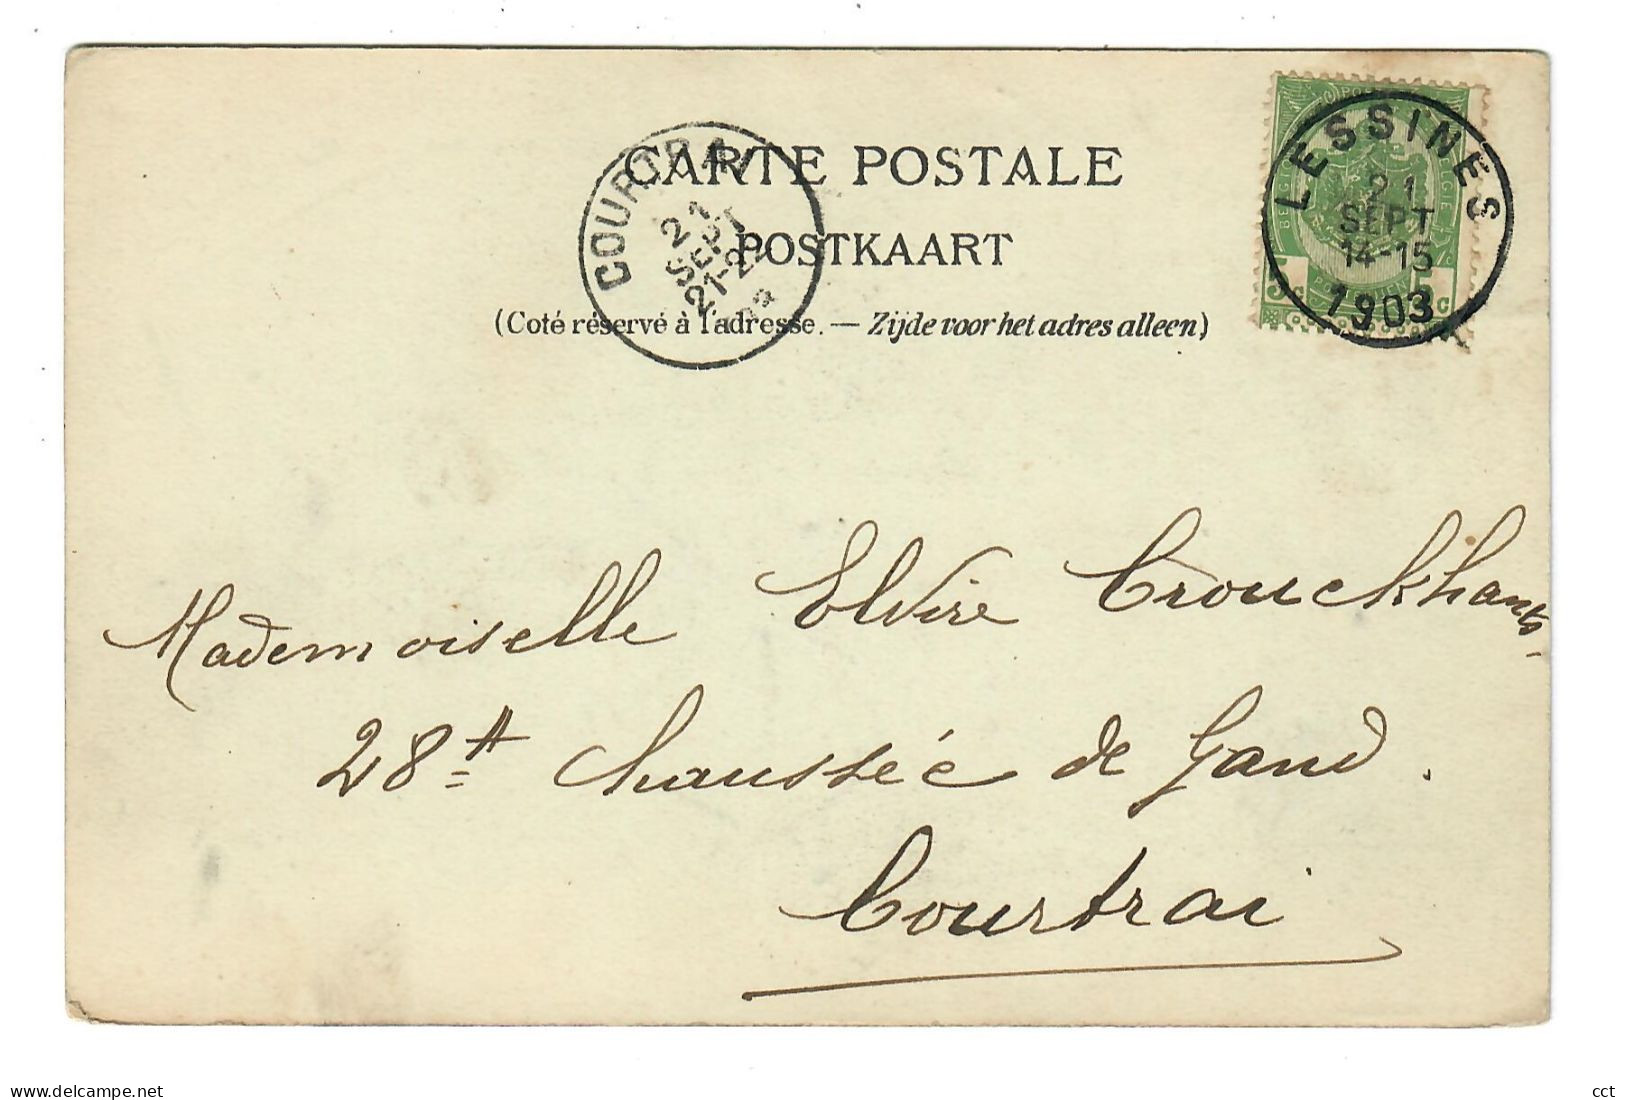 CARTE POSTALE
POSTKAART
(Coté réservé à l'adresse. — Zijde voor het adres alleen)
COURTRAI
21
SEPT
21-22
LESSINES
21
SEPT
14-15
1903
Mademoiselle Elvire Crouckhants
28A Chaussée de Gand.
Courtrai
https://www.delcampe.net
cct